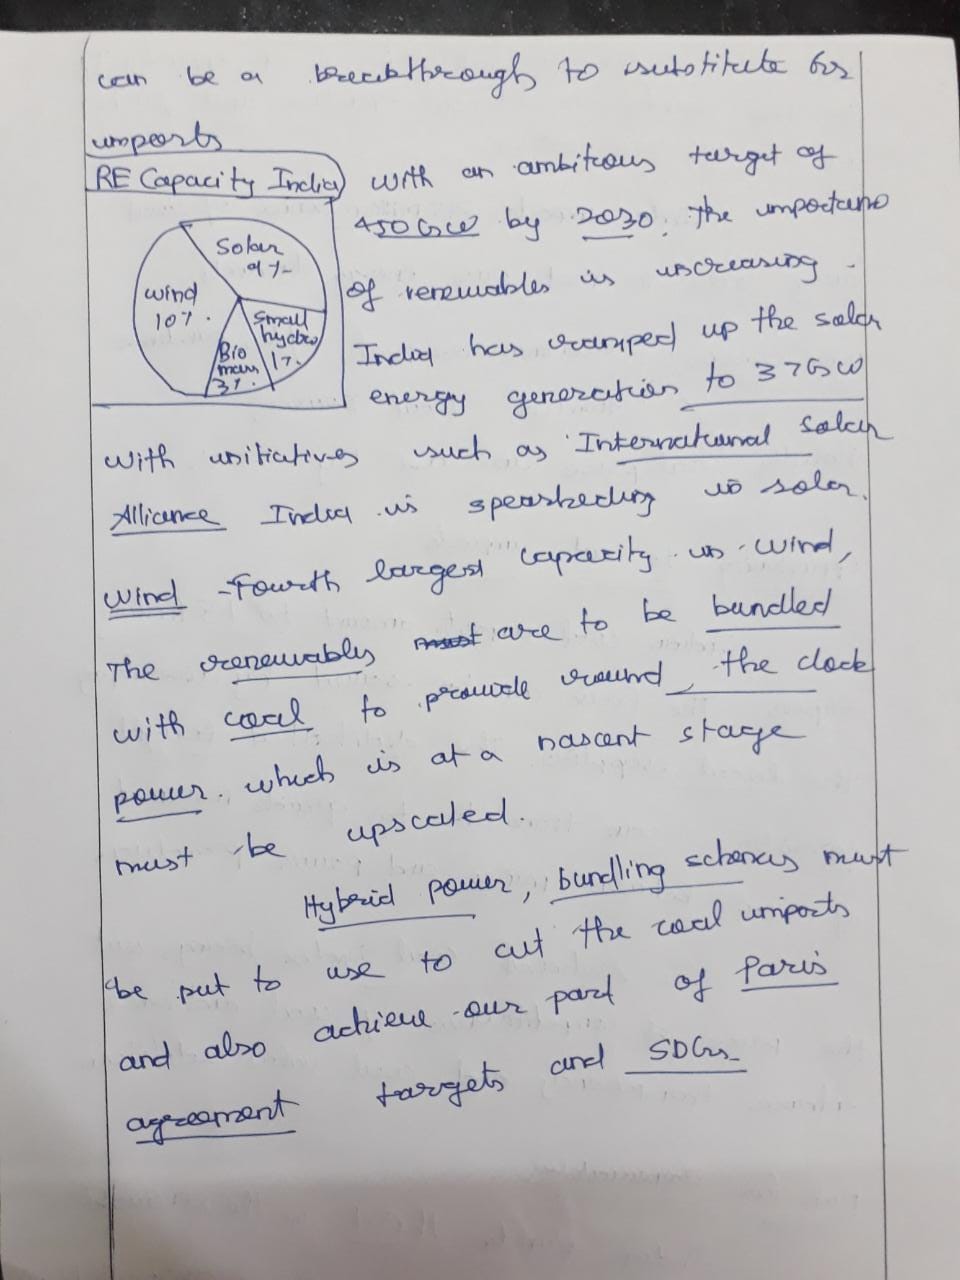 can be a breakthrough to substitute for
imports
RE Capacity India
Solar
9%
Wind
10%.
Small
hydro
1%.
Bio
mass
3%.
With an ambitious target of
450GW by 2030, the importance
of renewables is increasing.
India has ramped up the solar
energy generation to 37GW
with initiatives such as International Solar
Alliance India is spearheding in solar.
Wind - Fourth largest capacity in wind,
The renewables must are to be bundled
with coal to provide round the clock
power. which is at a nascent stage
must be upscaled.
Hybrid power, bundling schemes must
be put to use to cut the coal imports
and also achieve our part of Paris
agreement targets and SDGs